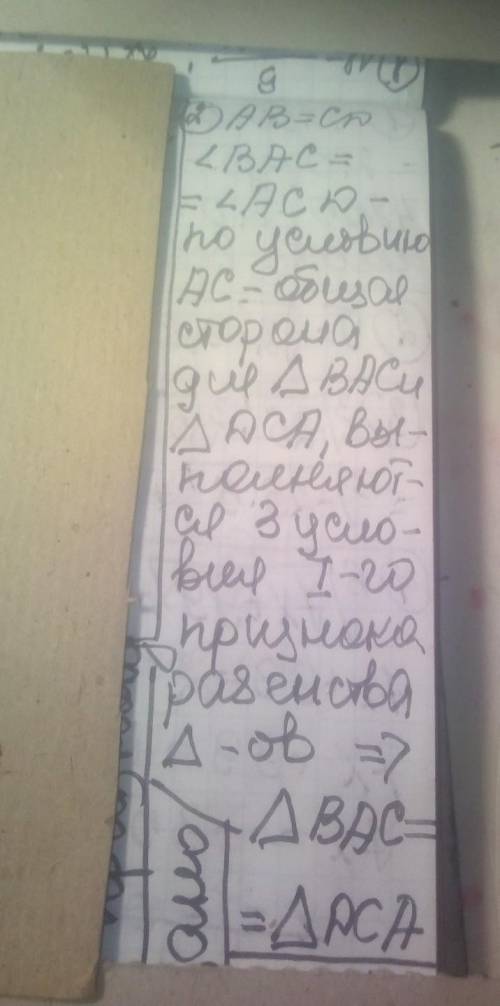 9
② AB=CD
∠BAC=
=∠ACD-
по условию
AC- общая
сторона
для △BAC и
△DCA, вы-
полняют-
ся 3 усло-
вия I-го
признака
равенства
△-ов =>
△BAC=
=△DCA